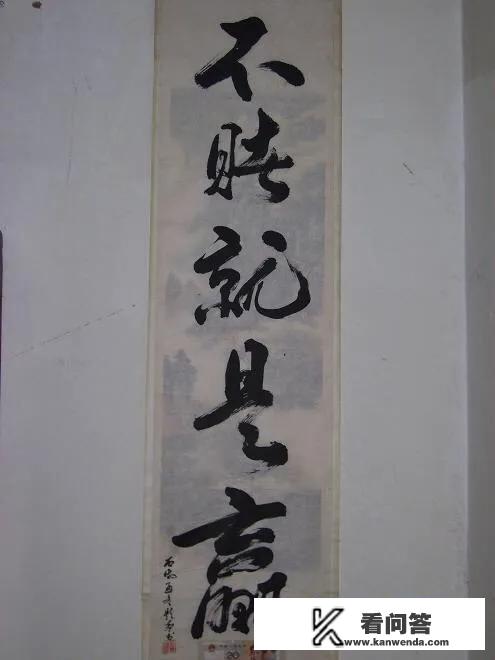 不赌就是赢
K
看问答
www.kanwenda.com
20